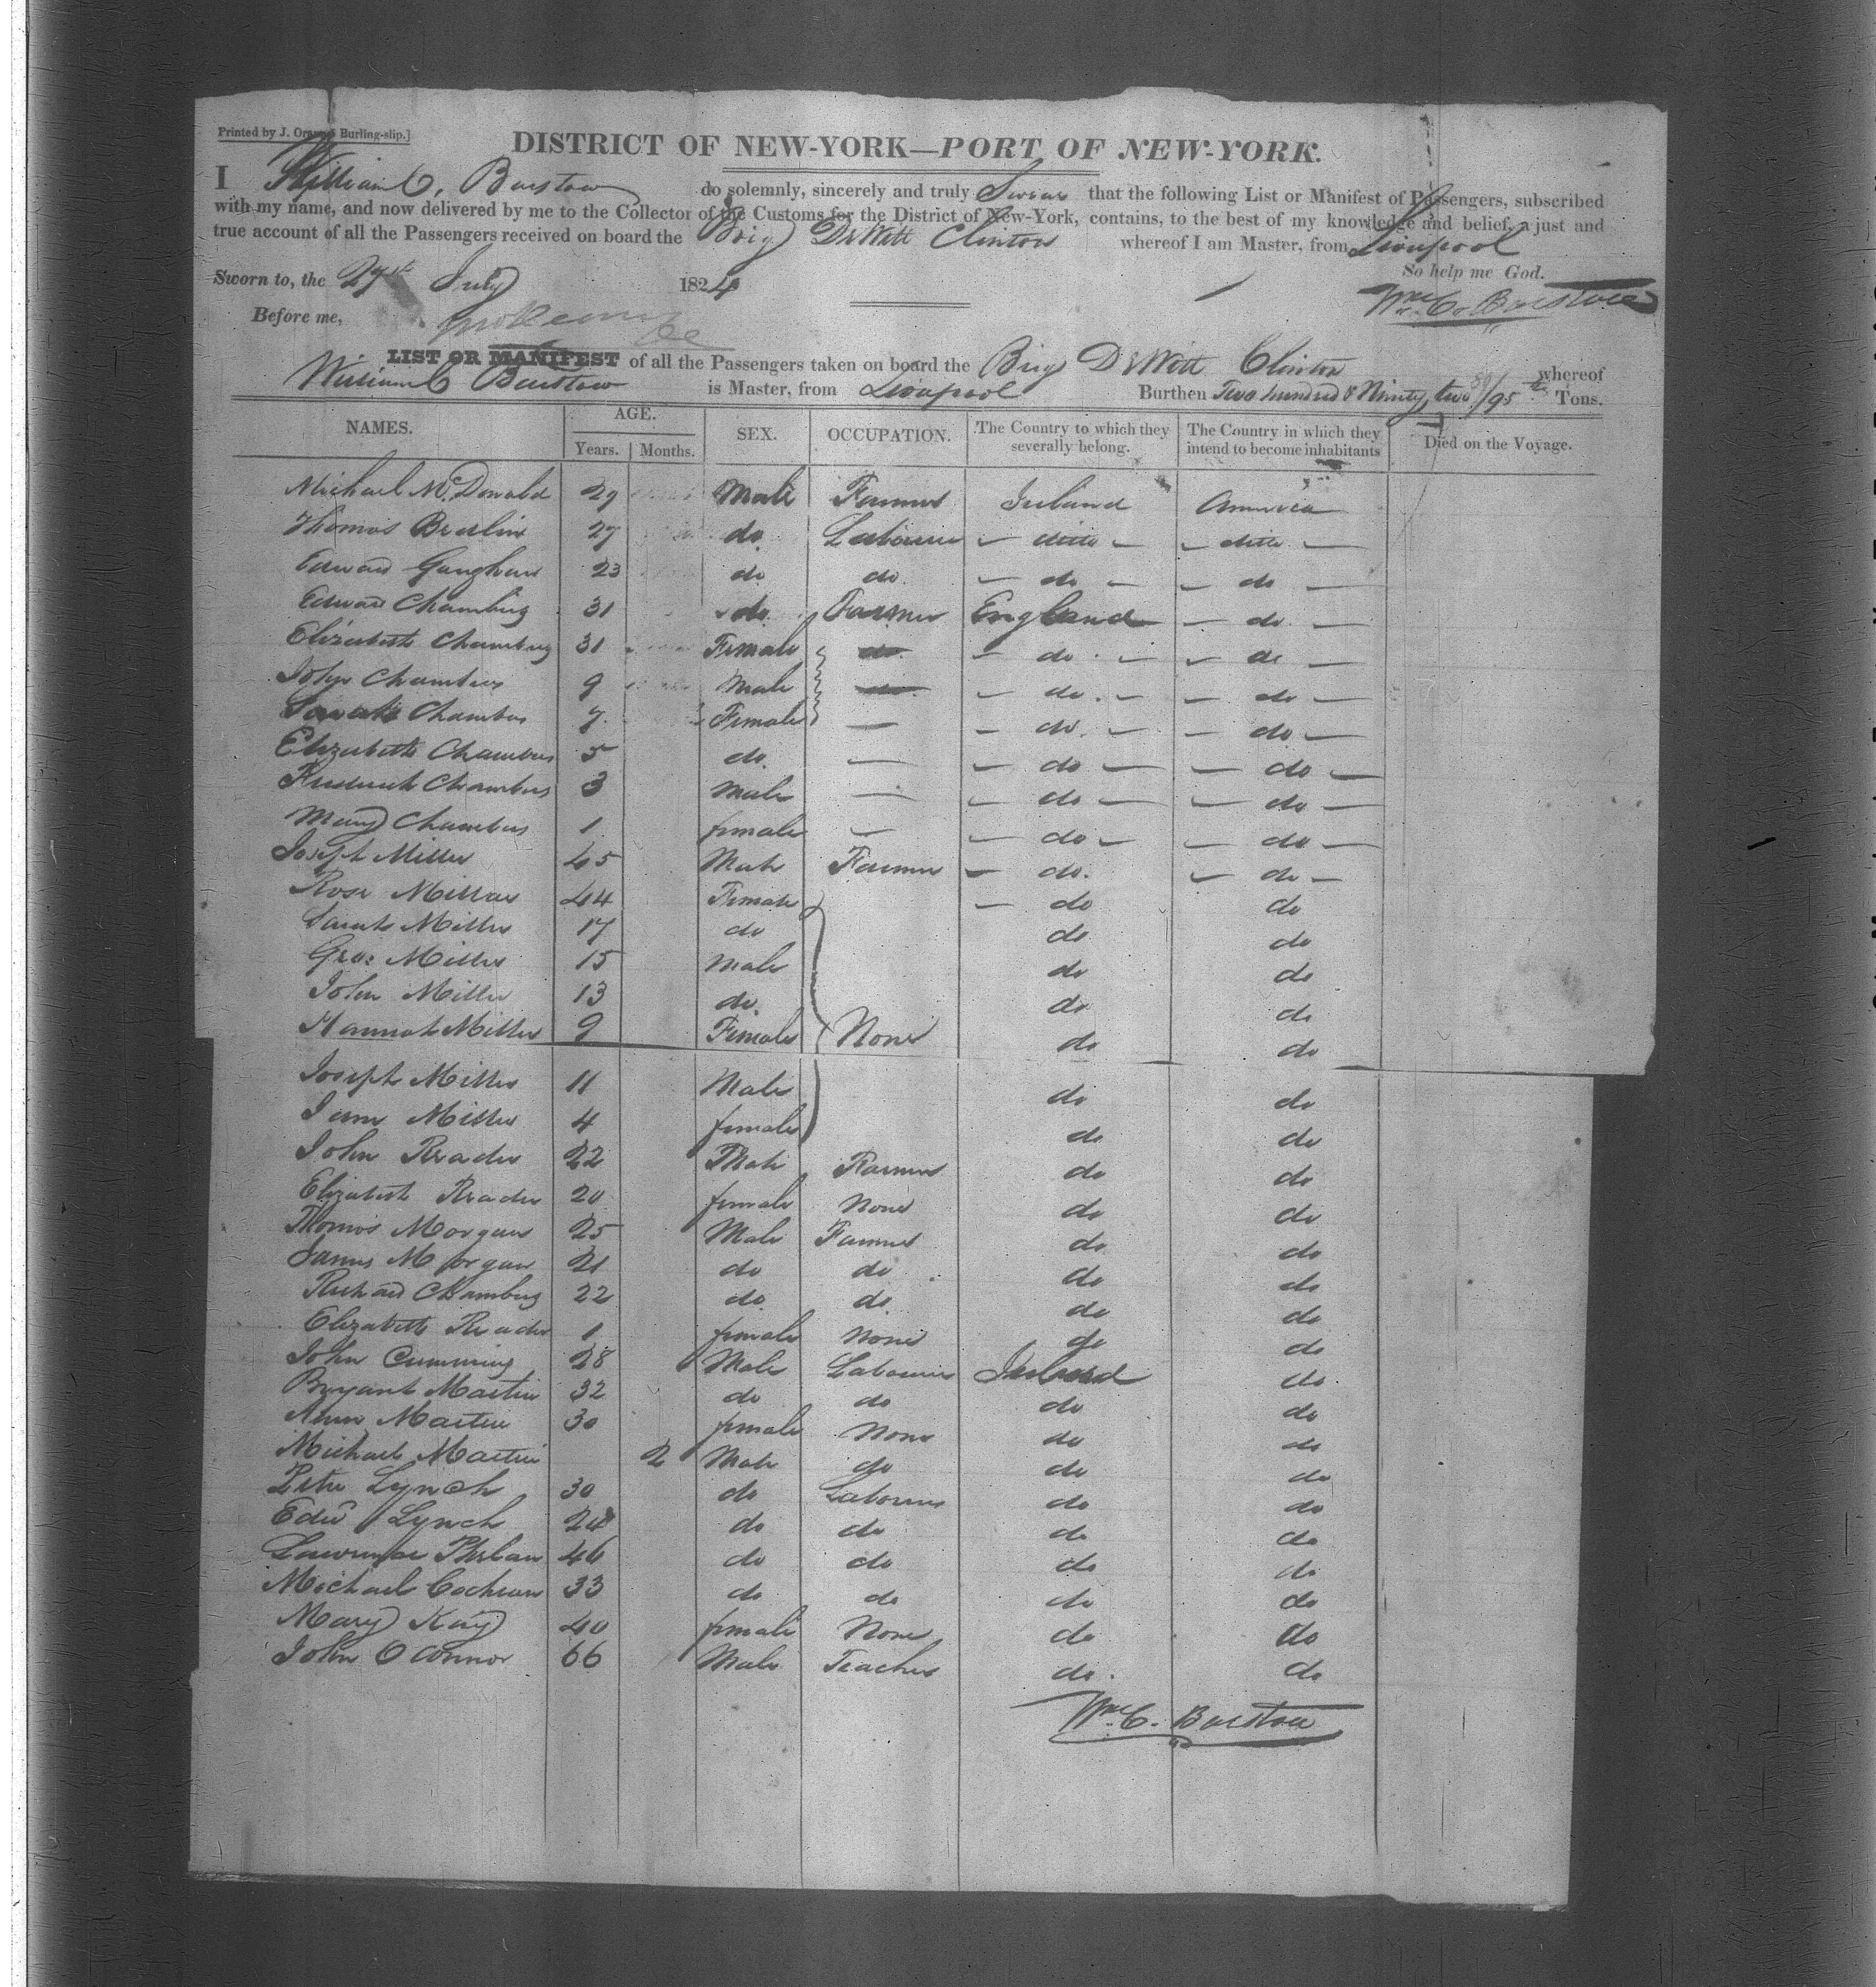 Printed by J. Oram, Burling-slip.]
DISTRICT OF NEW-YORK—PORT OF NEW-YORK.
I William C. Barstow do solemnly, sincerely and truly Swear that the following List or Manifest of Passengers, subscribed
with my name, and now delivered by me to the Collector of the Customs for the District of New-York, contains, to the best of my knowledge and belief, a just and
true account of all the Passengers received on board the Brig DeWitt Clinton whereof I am Master, from Liverpool
So help me God.
Sworn to, the 27th July 1824
Wm. C. Barstow
Before me,
LIST OR MANIFEST of all the Passengers taken on board the Brig DeWitt Clinton whereof
William C Barstow is Master, from Liverpool Burthen Two hundred & Ninety two /95th Tons.
NAMES. AGE. SEX. OCCUPATION. The Country to which they severally belong. The Country in which they intend to become inhabitants Died on the Voyage.
Years. Months.
Michael McDonald 29 Male Farmer Ireland America
Thomas Breslin 27 do Labourer — ditto — — ditto —
Edward Gaughan 23 do do — do — — do —
Edward Chambers 31 do Farmer England — do —
Elizabeth Chambers 31 Female do — do — — do —
John Chambers 9 Male do — do — — do —
Sarah Chambers 7 Female — — do — — do —
Elizabeth Chambers 5 do — — do — — do —
Frederick Chambers 3 Male — — do — — do —
Mary Chambers 1 female — — do — — do —
Joseph Miller 45 Male Farmer — do — do —
Rose Miller 44 Female — do do
Sarah Miller 17 do do do
Geo: Miller 15 Male do do
John Miller 13 do do do
Hannah Miller 9 Female None do do
Joseph Miller 11 Male do do
Jane Miller 4 female do do
John Reader 22 Male Farmer do do
Elizabeth Reader 20 female None do do
Thomas Morgan 25 Male Farmer do do
James Morgan 21 do do do do
Richard Chambers 22 do do do do
Elizabeth Reader 1 female None do do
John Cumming 28 Male Labourer Ireland do
Bryant Martin 32 do do do do
Ann Martin 30 female None do do
Michael Martin 2 Male do do do
Peter Lynch 30 do Labourer do do
Edwd Lynch 24 do do do do
Lawrence Phelan 46 do do do do
Michael Cochran 33 do do do do
Mary Kay 40 female None do do
John O Connor 66 Male Teacher do do
Wm. C. Barstow